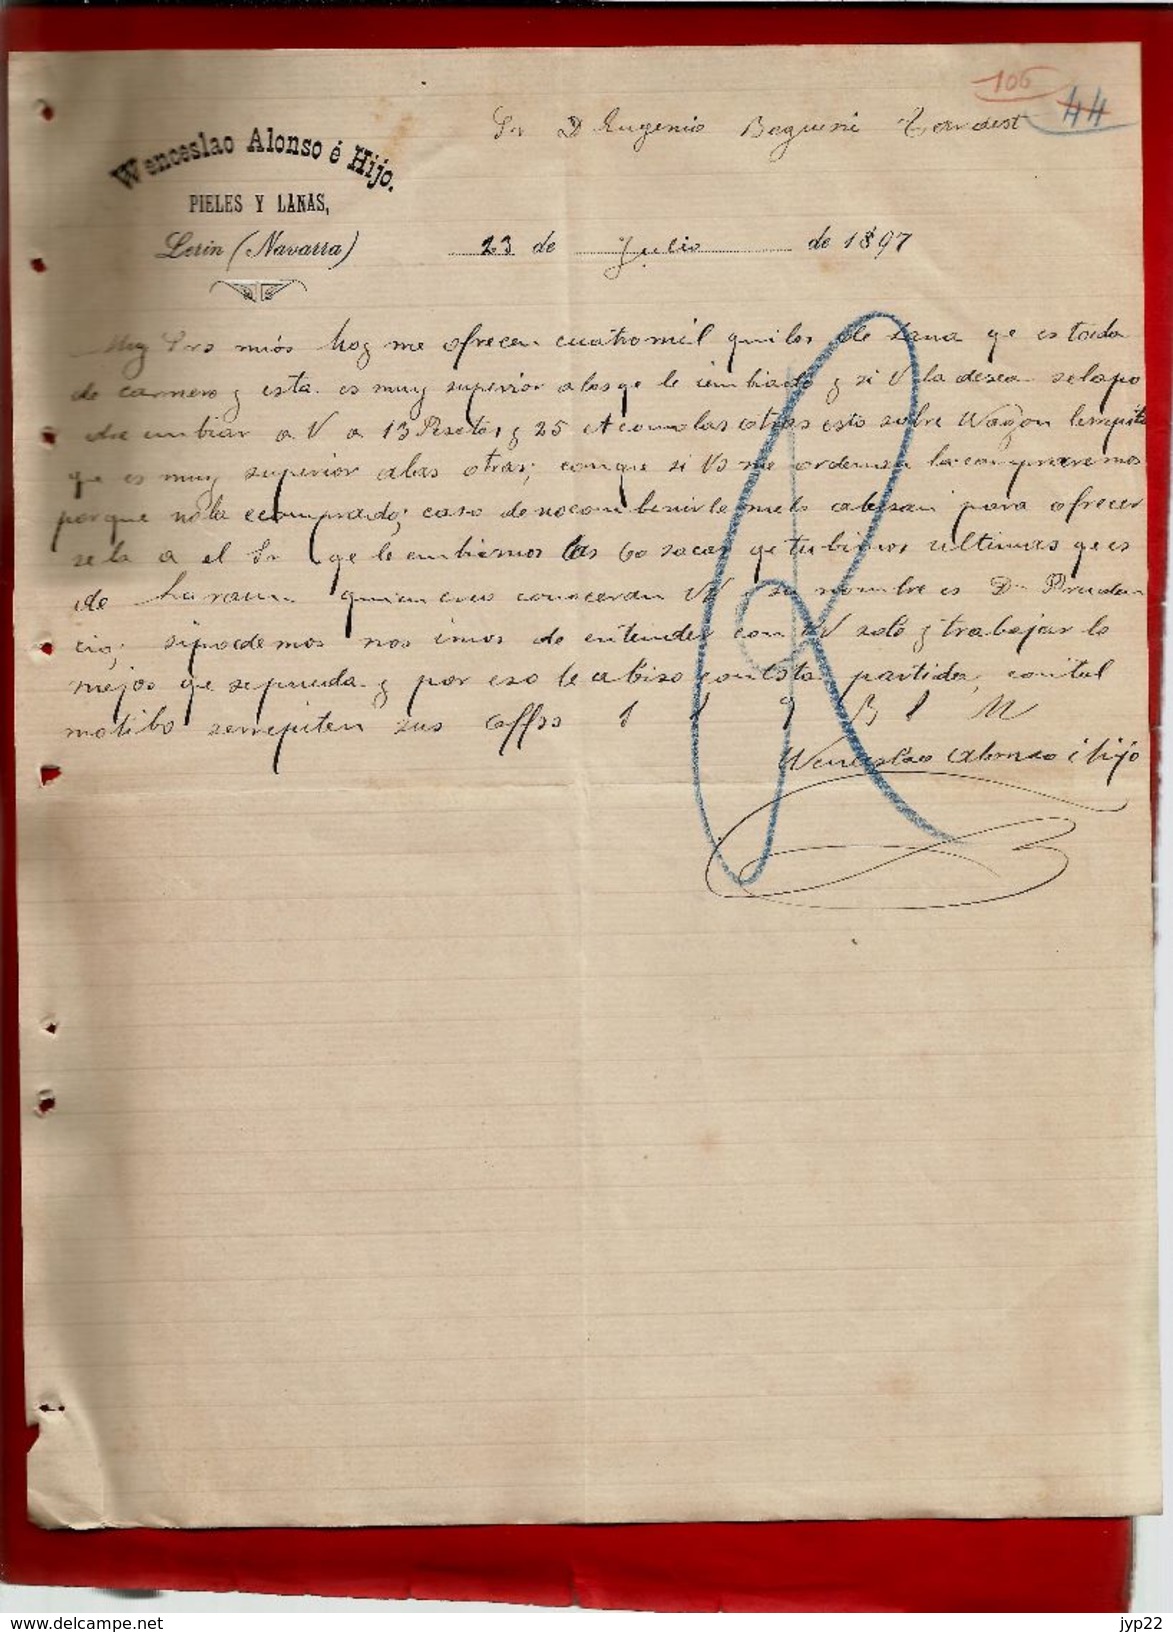 106
44
Sr D Eugenio
Wenceslao Alonso é Hijo.
PIELES Y LANAS,
Lerin (Navarra)
23 de Julio de 1897
Muy Srs miós hoy me ofrecen cuatro mil quilos de Lana qe es toda
de carnero y esta es muy superior a las qe le y si V la desea se la po
dre embiar a V a 13 Pesetas y 25 como las otras esto sobre Wagon le rrepito
que es muy superior alas otras; conque si Vs me ordenan la compraremos
porque no la ecomprado; caso de nocombenirle melo abisan para ofrecer
sela a el Sr qe le embiamos las 60 sacas qe tubimos ultimas qe es
de quien creo conoceran VV su nombre es Dn Pruden
cio; sipodemos nos imos de entender con V solo y trabajar lo
mejor qe sepueda y por eso le abiso con esta partida, con tal
motibo serrepiten sus affso S S q B S M
Wenceslao Alonso é hijo
delcampe.net
jyp22